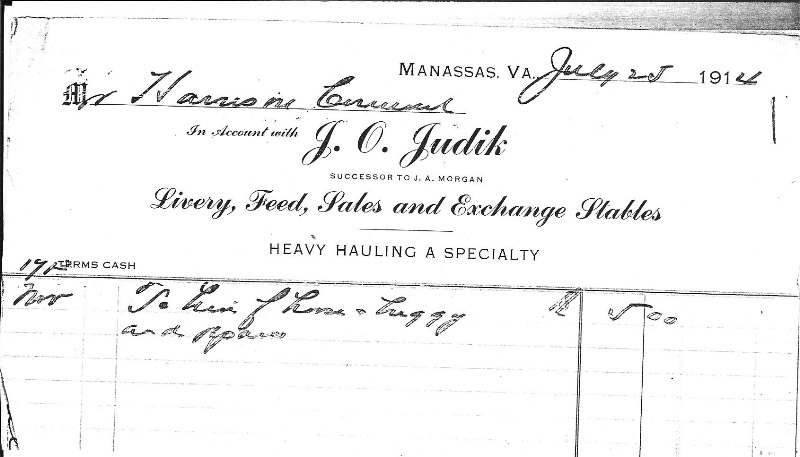 MANASSAS, VA., July 25 1914
Mr Harrison
In Account with J. O. Judik
SUCCESSOR TO J. A. MORGAN
Livery, Feed, Sales and Exchange Stables
HEAVY HAULING A SPECIALTY
TERMS CASH
Nov To hire of horse & buggy 5 00
and